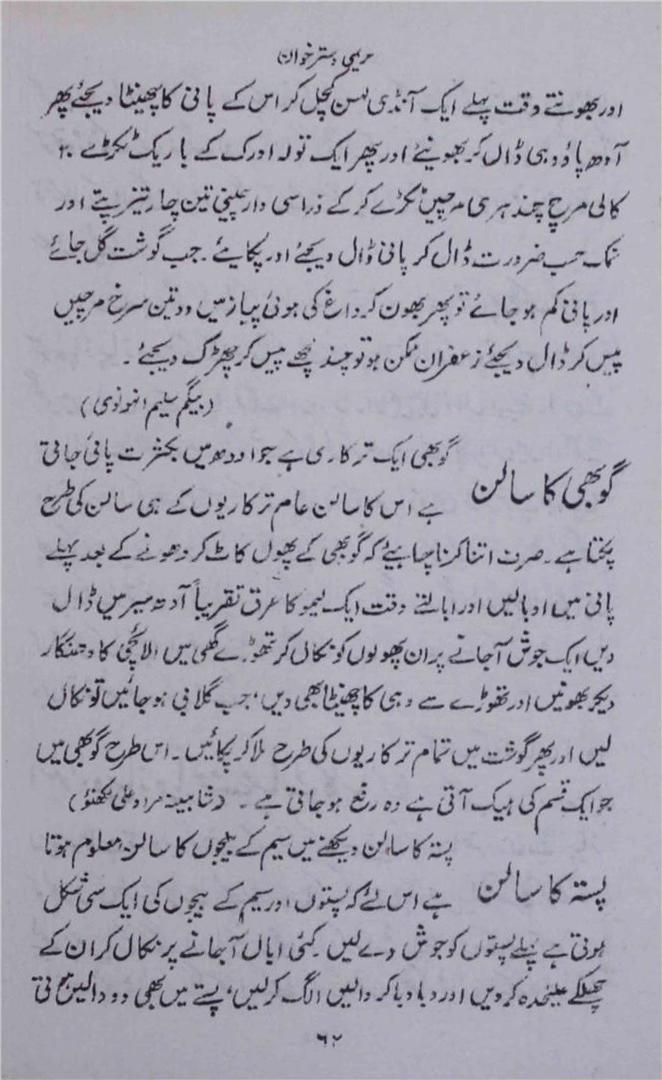 حریمی دسترخوان
اور بھونتے وقت پہلے ایک آنڈی لہسن کچل کر اس کے پانی کا چھینٹا دیجئے پھر
آدھ پاؤ دہی ڈال کر بھونیئے اور پھر ایک تولہ ادرک کے باریک ٹکڑے ۲۰
کالی مرچ چند ہری مرچیں ٹکڑے کر کے ذراسی دار چینی تین چار تیز پتے اور
نمک حسب ضرورت ڈال کر پانی ڈال دیجئے اور پکایئے ۔ جب گوشت گل جائے
اور پانی کم ہو جائے تو پھر بھون کر داغ کی ہوئی پیاز میں دو تین سرخ مرچیں
پیس کر ڈال دیجئے زعفران ممکن ہو تو چند لچھے پیس کر چھڑک دیجئے ۔
(بیگم سلیم انہونوی)
گوبھی کا سالن گوبھی ایک ترکاری ہے جو اودھ میں بکثرت پائی جاتی
ہے اس کا سالن عام ترکاریوں کے ہی سالن کی طرح
پکتا ہے ۔ صرف اتنا کرنا چاہیئے کہ گوبھی کے پھول کاٹ کر دھونے کے بعد پہلے
پانی میں اوبالیں اور ابالتے وقت ایک لیمو کا عرق تقریباً آدھ سیر میں ڈال
دیں ایک جوش آجانے پر ان پھولوں کو نکال کر تھوڑے گھی میں الائچی کا دھنگار
دیکر بھونیں اور تھوڑے سے دہی کا چھینٹا بھی دیں، جب گلابی ہو جائیں تو نکال
لیں اور پھر گوشت میں تمام ترکاریوں کی طرح ملا کر پکائیں ۔ اس طرح گوبھی میں
جو ایک قسم کی ہیک آتی ہے وہ رفع ہو جاتی ہے ۔ (شاہینہ مراد علی لکھنؤ)
پستہ کا سالن پستہ کا سالن دیکھنے میں سیم کے بیجوں کا سالن معلوم ہوتا
ہے اس لئے کہ پستوں اور سیم کے بیجوں کی ایک سی شکل
ہوتی ہے پہلے پستوں کو جوش دے لیں ۔ کئی ابال آجانے پر نکال کر ان کے
چھلکے علیٰحدہ کر دیں اور دبا دبا کر دالیں الگ کر لیں، پستے میں بھی دو دالیں ہوتی
۶۲